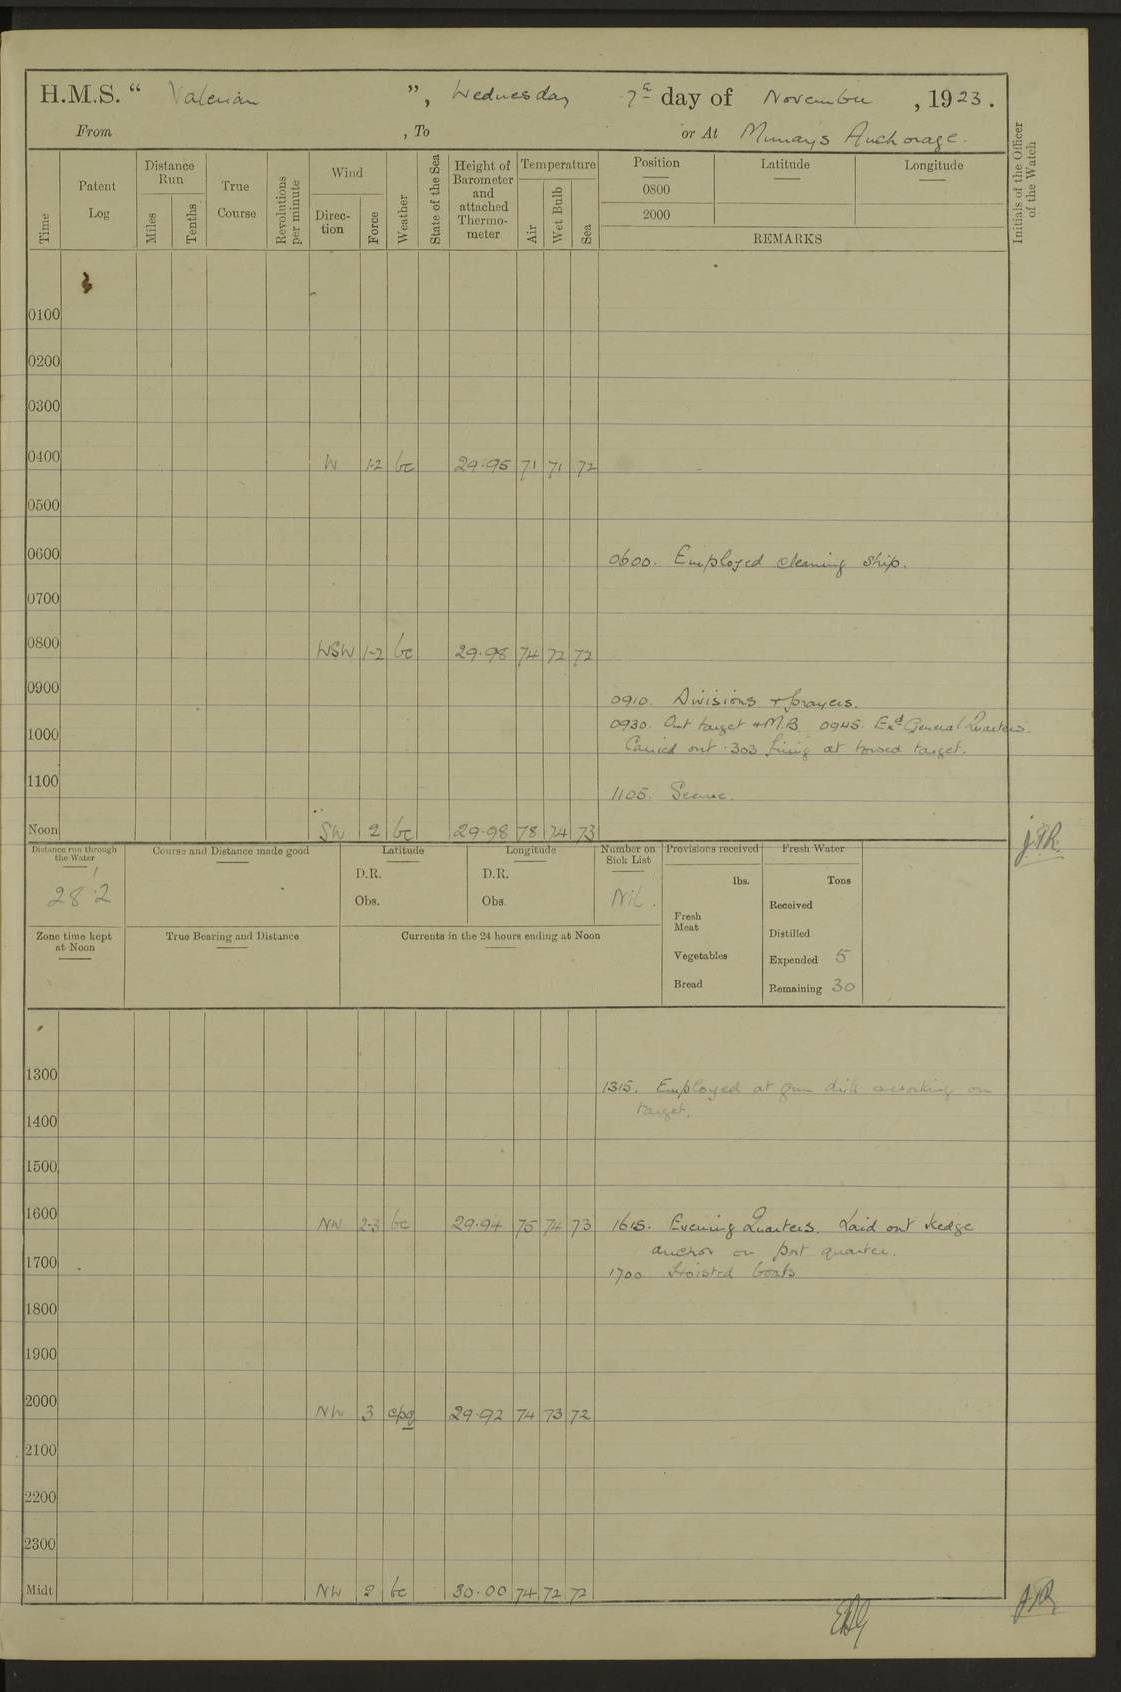 H.M.S. “ Valerian ”, Wednesday 7th day of November, 1923.
From , To or At Murray's Anchorage.
Time
Patent Log
Distance Run
Miles
Tenths
True Course
Revolutions per minute
Wind
Direction
Force
Weather
State of the Sea
Height of Barometer and attached Thermometer
Temperature
Air
Wet Bulb
Sea
Position
0800
2000
Latitude
Longitude
REMARKS
Initials of the Officer of the Watch
0100
0200
0300
0400 W 1-2 bc 29.95 71 71 72
0500
0600 0600. Employed cleaning ship.
0700
0800 WSW 1-2 bc 29.98 74 72 72
0900 0910. Divisions + prayers.
0930. Out target + M.B. 0945. Exd General Quarters.
1000 Carried out .303 firing at towed target.
1100 1105. Secure.
Noon SW 2 bc 29.98 78 74 73 JTR.
Distance run through the Water
28.2
Course and Distance made good
Latitude
D.R.
Obs.
Longitude
D.R.
Obs.
Number on Sick List
Nil.
Provisions received
lbs.
Fresh Meat
Vegetables
Bread
Fresh Water
Tons
Received
Distilled
Expended 5
Remaining 30
Zone time kept at Noon
True Bearing and Distance
Currents in the 24 hours ending at Noon
1300 1315. Employed at gun drill working on
target.
1400
1500
1600 NW 2-3 bc 29.94 75 74 73 1615. Evening Quarters. Laid out kedge
anchor on port quarter.
1700 1700 Hoisted boats
1800
1900
2000 NW 3 cpq 29.92 74 73 72
2100
2200
2300
Midt NW 2 bc 30.00 74 72 72 JTR